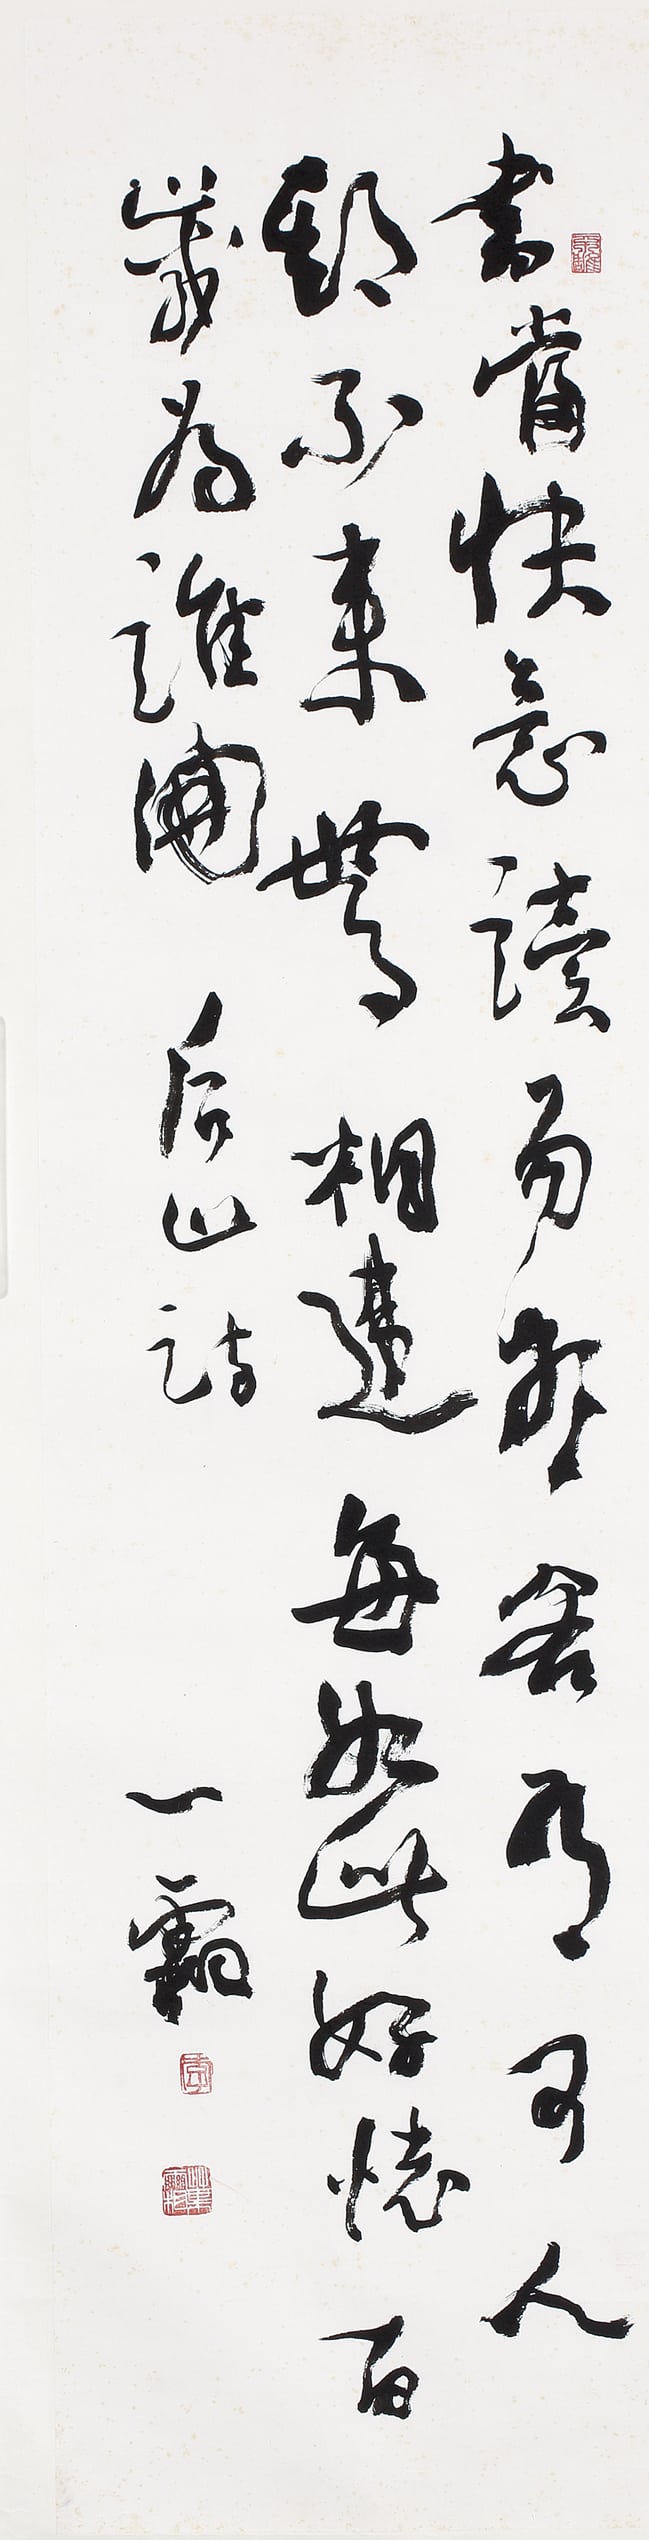 書當快意讀易盡客有可人
期不來世事相違每如此好懷百
歲為誰開 后山詩 一